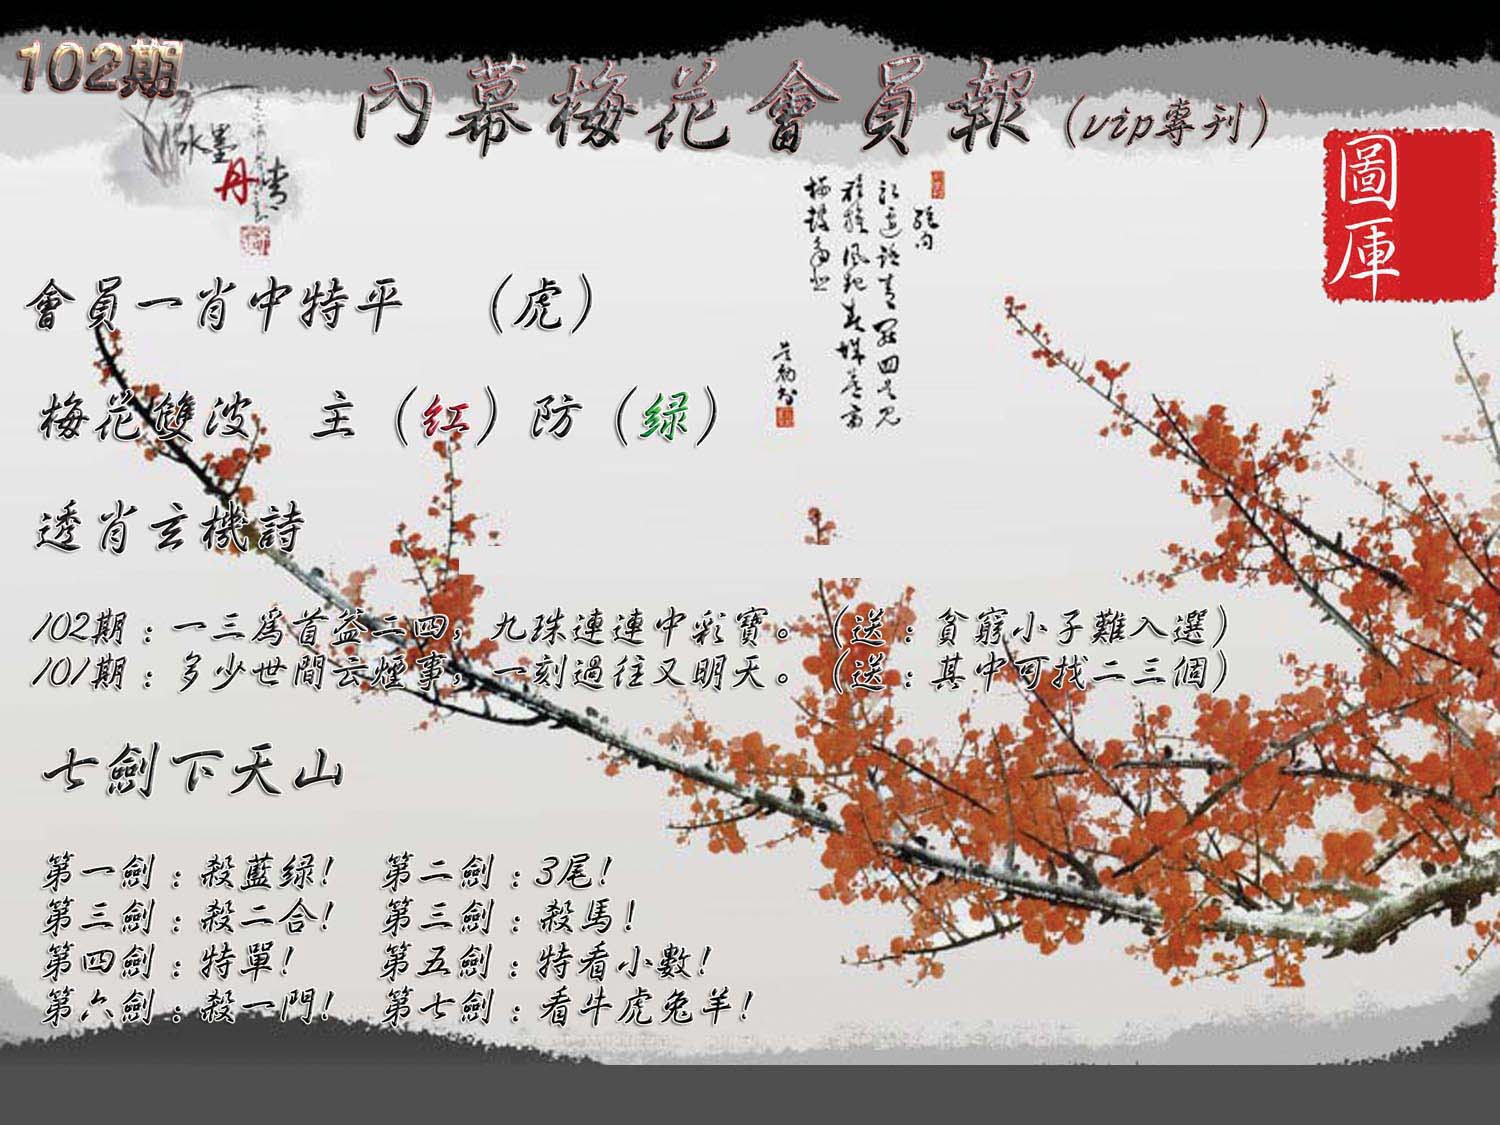 102期
內幕梅花會員報(vip專刊)
水墨
丹青
圖庫
會員一肖中特平 (虎)
梅花雙波 主(红)防(绿)
透肖玄機詩
102期:一三爲首益二四,九珠連連中彩寶。(送:貧窮小子難入選)
101期:多少世間云煙事,一刻過往又明天。(送:其中可找二三個)
七劍下天山
第一劍:殺藍绿! 第二劍:3尾!
第三劍:殺二合! 第三劍:殺馬!
第四劍:特單! 第五劍:特看小數!
第六劍:殺一門! 第七劍:看牛虎兔羊!